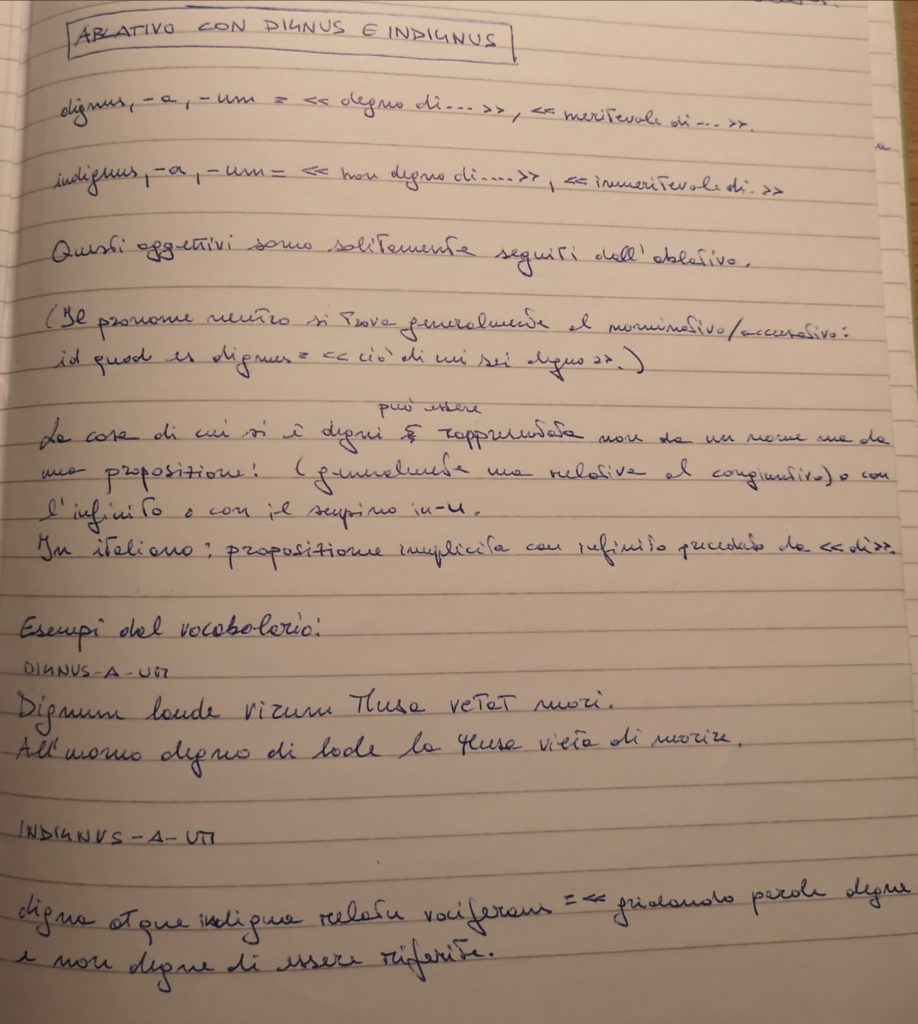 ABLATIVO CON DIGNUS E INDIGNUS
dignus, -a, -um = << degno di... >>, << meritevole di... >>.
indignus, -a, -um = << non degno di.... >>, << immeritevole di. >>
Questi aggettivi sono solitamente seguiti dall'ablativo.
(Il pronome neutro si trova generalmente al nominativo/accusativo:
id quod es dignus = << ciò di cui sei degno >>.)
può essere
La cosa di cui si è degni è rappresentata non da un nome ma da
una proposizione: (generalmente una relativa al congiuntivo) o con
l'infinito o con il supino in -u.
In italiano: proposizione implicita con infinito preceduto da << di >>.
Esempi dal vocabolario:
DIGNUS-A-UM
Dignum laude virum Musa vetat mori.
All'uomo degno di lode la Musa vieta di morire.
INDIGNUS-A-UM
digna atque indigna relatu vociferans = << gridando parole degne
e non degne di essere riferite.